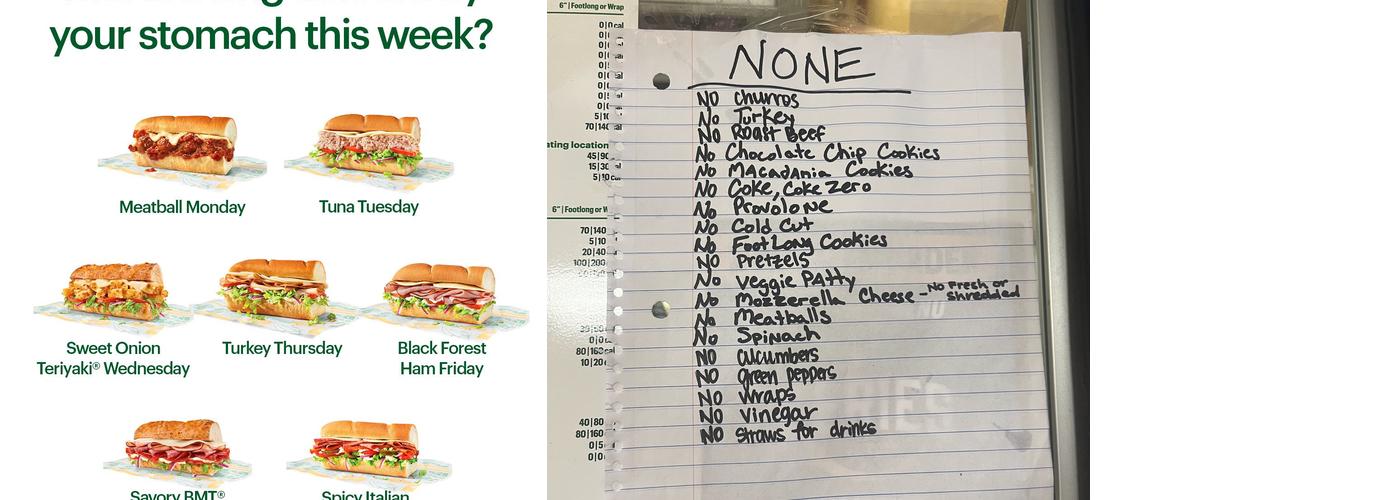 your stomach this week?
Meatball Monday
Tuna Tuesday
Sweet Onion
Teriyaki® Wednesday
Turkey Thursday
Black Forest
Ham Friday
Savory BMT®
Spicy Italian
6" | Footlong or Wrap
0|0 cal
0|0
5|10
70|140
ating location
45|90
15|30
5|10 cal
6" | Footlong or W
70|140
5|10
20|40
100|200
80|160 cal
10|20
40|80
80|160
0|5
0|0
NONE
NO churros
No Turkey
NO Roast Beef
No Chocolate Chip Cookies
No MAcadania Cookies
NO Coke, Coke Zero
No Provolone
No Cold Cut
No FootLong Cookies
NO Pretzels
No Veggie PAtty
No Mozzerella Cheese - No Fresh or shredded
No Meatballs
No Spinach
NO cucumbers
NO green peppers
NO wraps
NO vinegar
NO straws for drinks